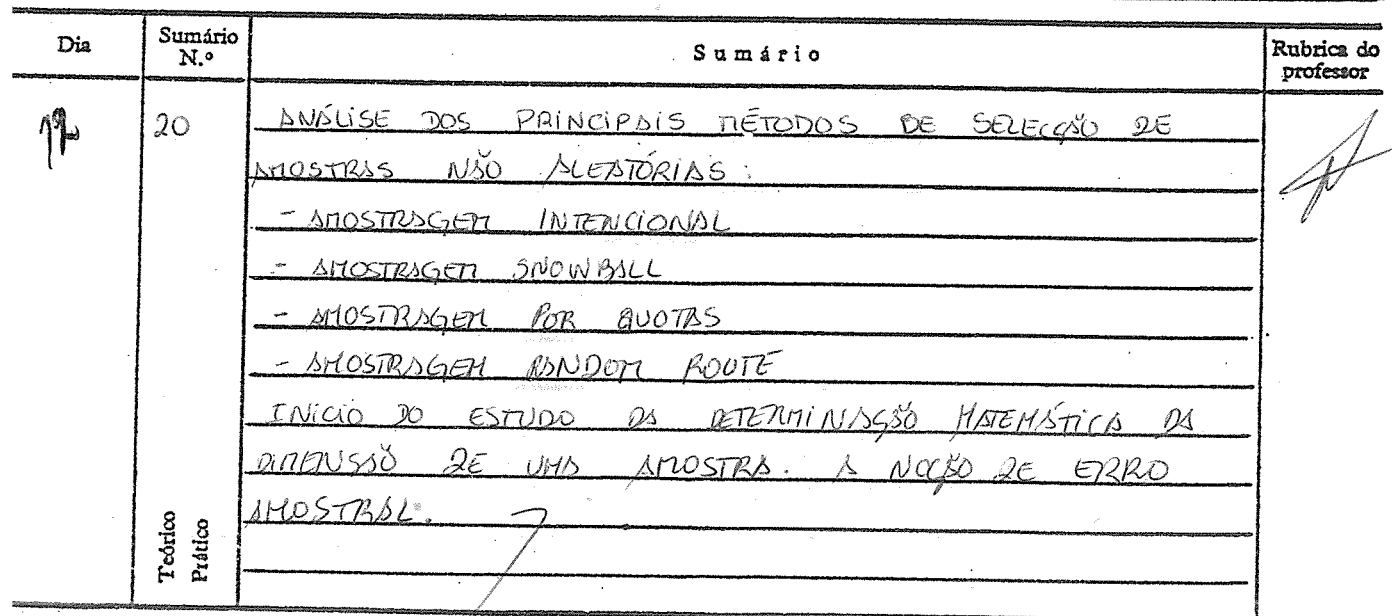 Dia
Sumário N.º
Sumário
Rubrica do professor
20
ANÁLISE DOS PRINCIPAIS MÉTODOS DE SELECÇÃO DE
AMOSTRAS NÃO ALEATÓRIAS:
- AMOSTRAGEM INTENCIONAL
- AMOSTRAGEM SNOWBALL
- AMOSTRAGEM POR QUOTAS
- AMOSTRAGEM RANDOM ROUTE
INICIO DO ESTUDO DA DETERMINAÇÃO MATEMÁTICA DA
DIMENSÃO DE UMA AMOSTRA. A NOÇÃO DE ERRO
AMOSTRAL.
Teórico
Prático